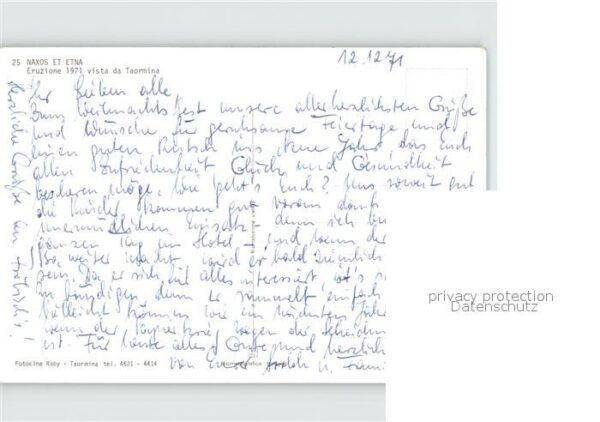 25 NAXOS ET ETNA
Eruzione 1971 vista da Taormina
12.12.71
Ihr Lieben alle,
zum Weihnachtsfest unsere allerherzlichsten Grüße
und Wünsche für geruhsame Feiertage und
einen guten Rutsch ins Neue Jahr, das Euch
allen Zufriedenheit Glück und Gesundheit
bescheren möge. Wie geht's Euch? Uns soweit gut
die Kinder kommen gut voran dank
unermüdlichen Einsatz, denn ich bin
ganzen Tag im Hotel - und wenn der
so weiter macht wird er bald ziemlich
sein. Da er sich für alles interessiert, ist's
zu bändigen denn er sammelt einfach
Vielleicht können wir im nächsten Jahr
wenn der Papierkrieg wegen der Scheidung
ist. Für heute alles Gute und herzlich
von Eurer u.
Herzliche Grüße an
Fotocine Roby - Taormina tel. 4621 - 4414
privacy protection
Datenschutz